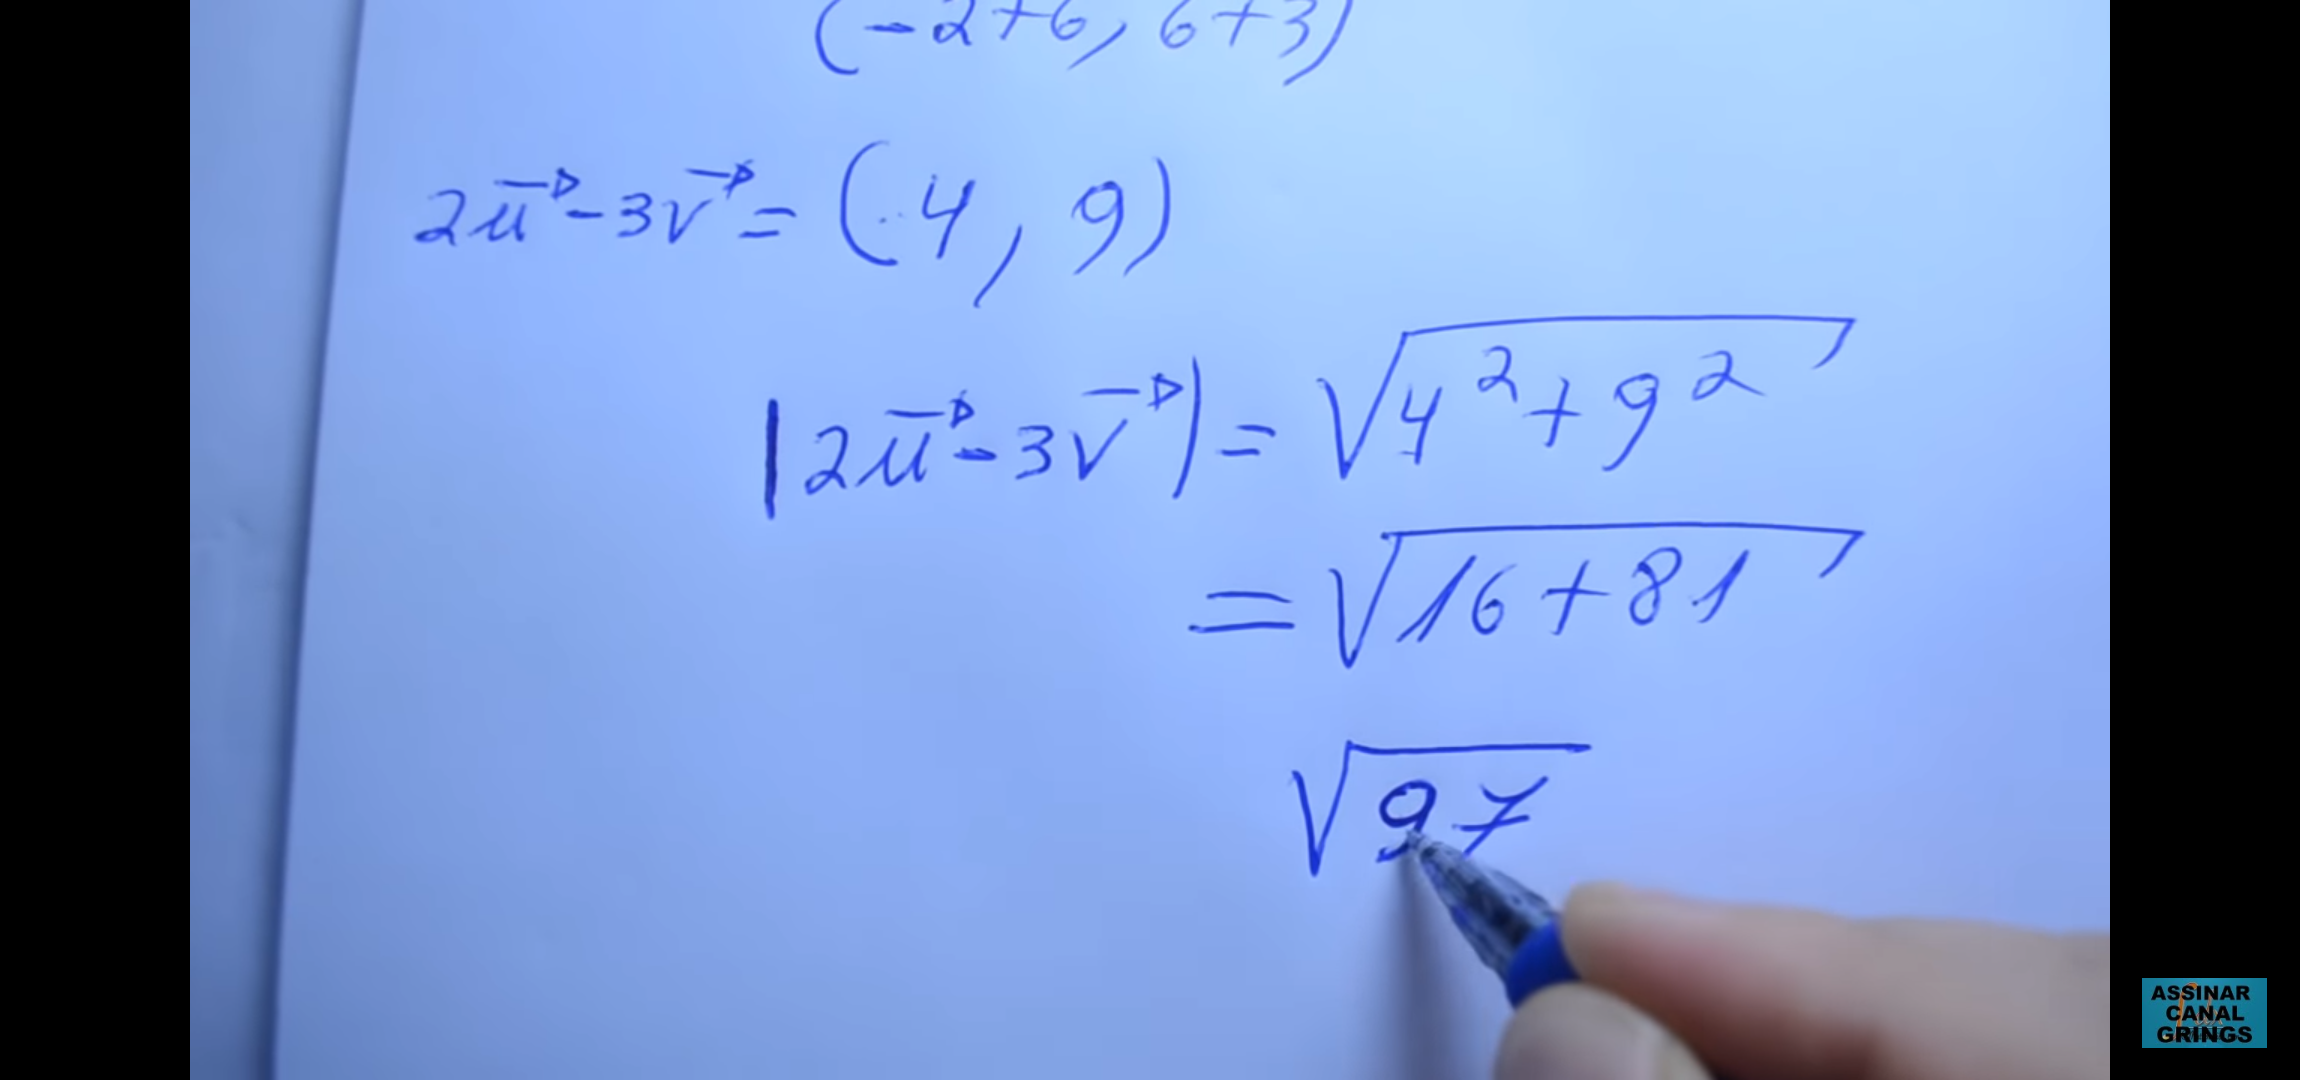 (-2+6, 6+3)
2u⃗ - 3v⃗ = (4, 9)
|2u⃗ - 3v⃗| = √4² + 9²
= √16 + 81
√97
ASSINAR
CANAL
GRINGS